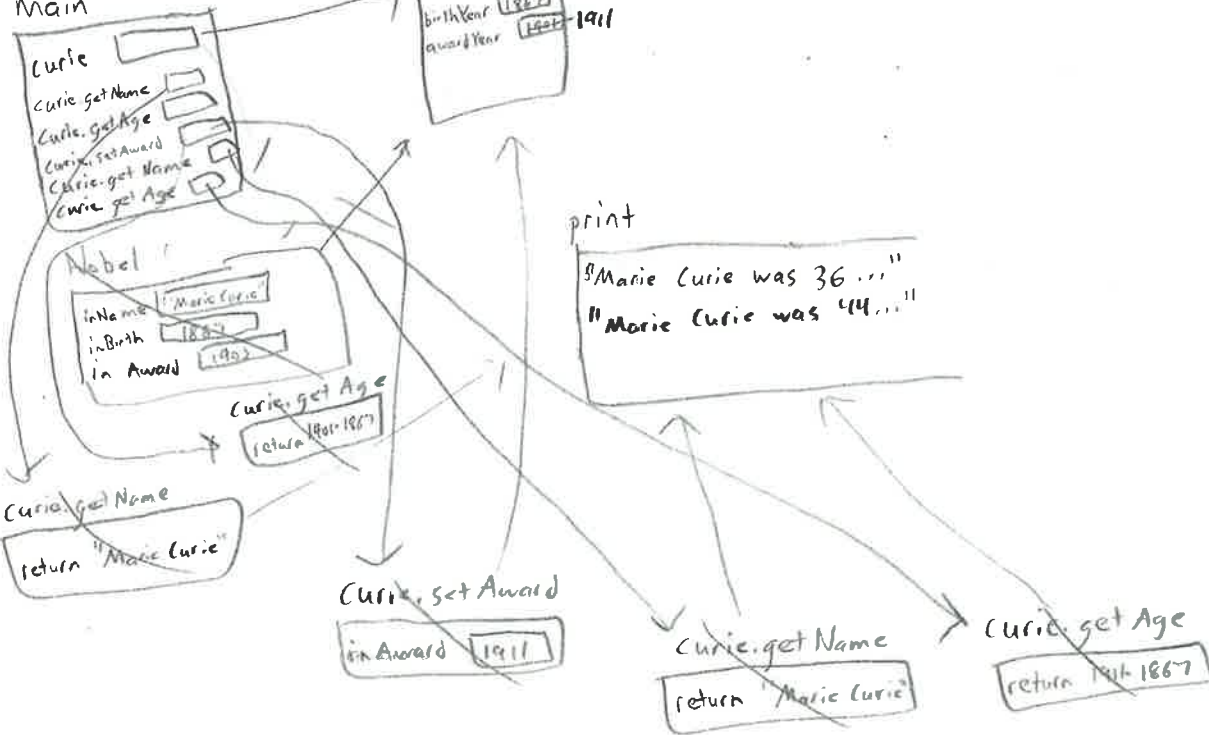 Main
curie
curie.getName
Curie.getAge
Curie.setAward
Curie.get Name
curie get Age
birthYear 1867
awardYear
1911
Nobel
inName "Marie Curie"
inBirth 1867
in Award
Curie.get Age
return 1867
Curie.get Name
return "Marie Curie"
print
"Marie Curie was 36..."
"Marie Curie was 44..."
Curie.set Award
in Award 1911
Curie.get Name
return "Marie Curie"
Curie.get Age
return 1911-1867